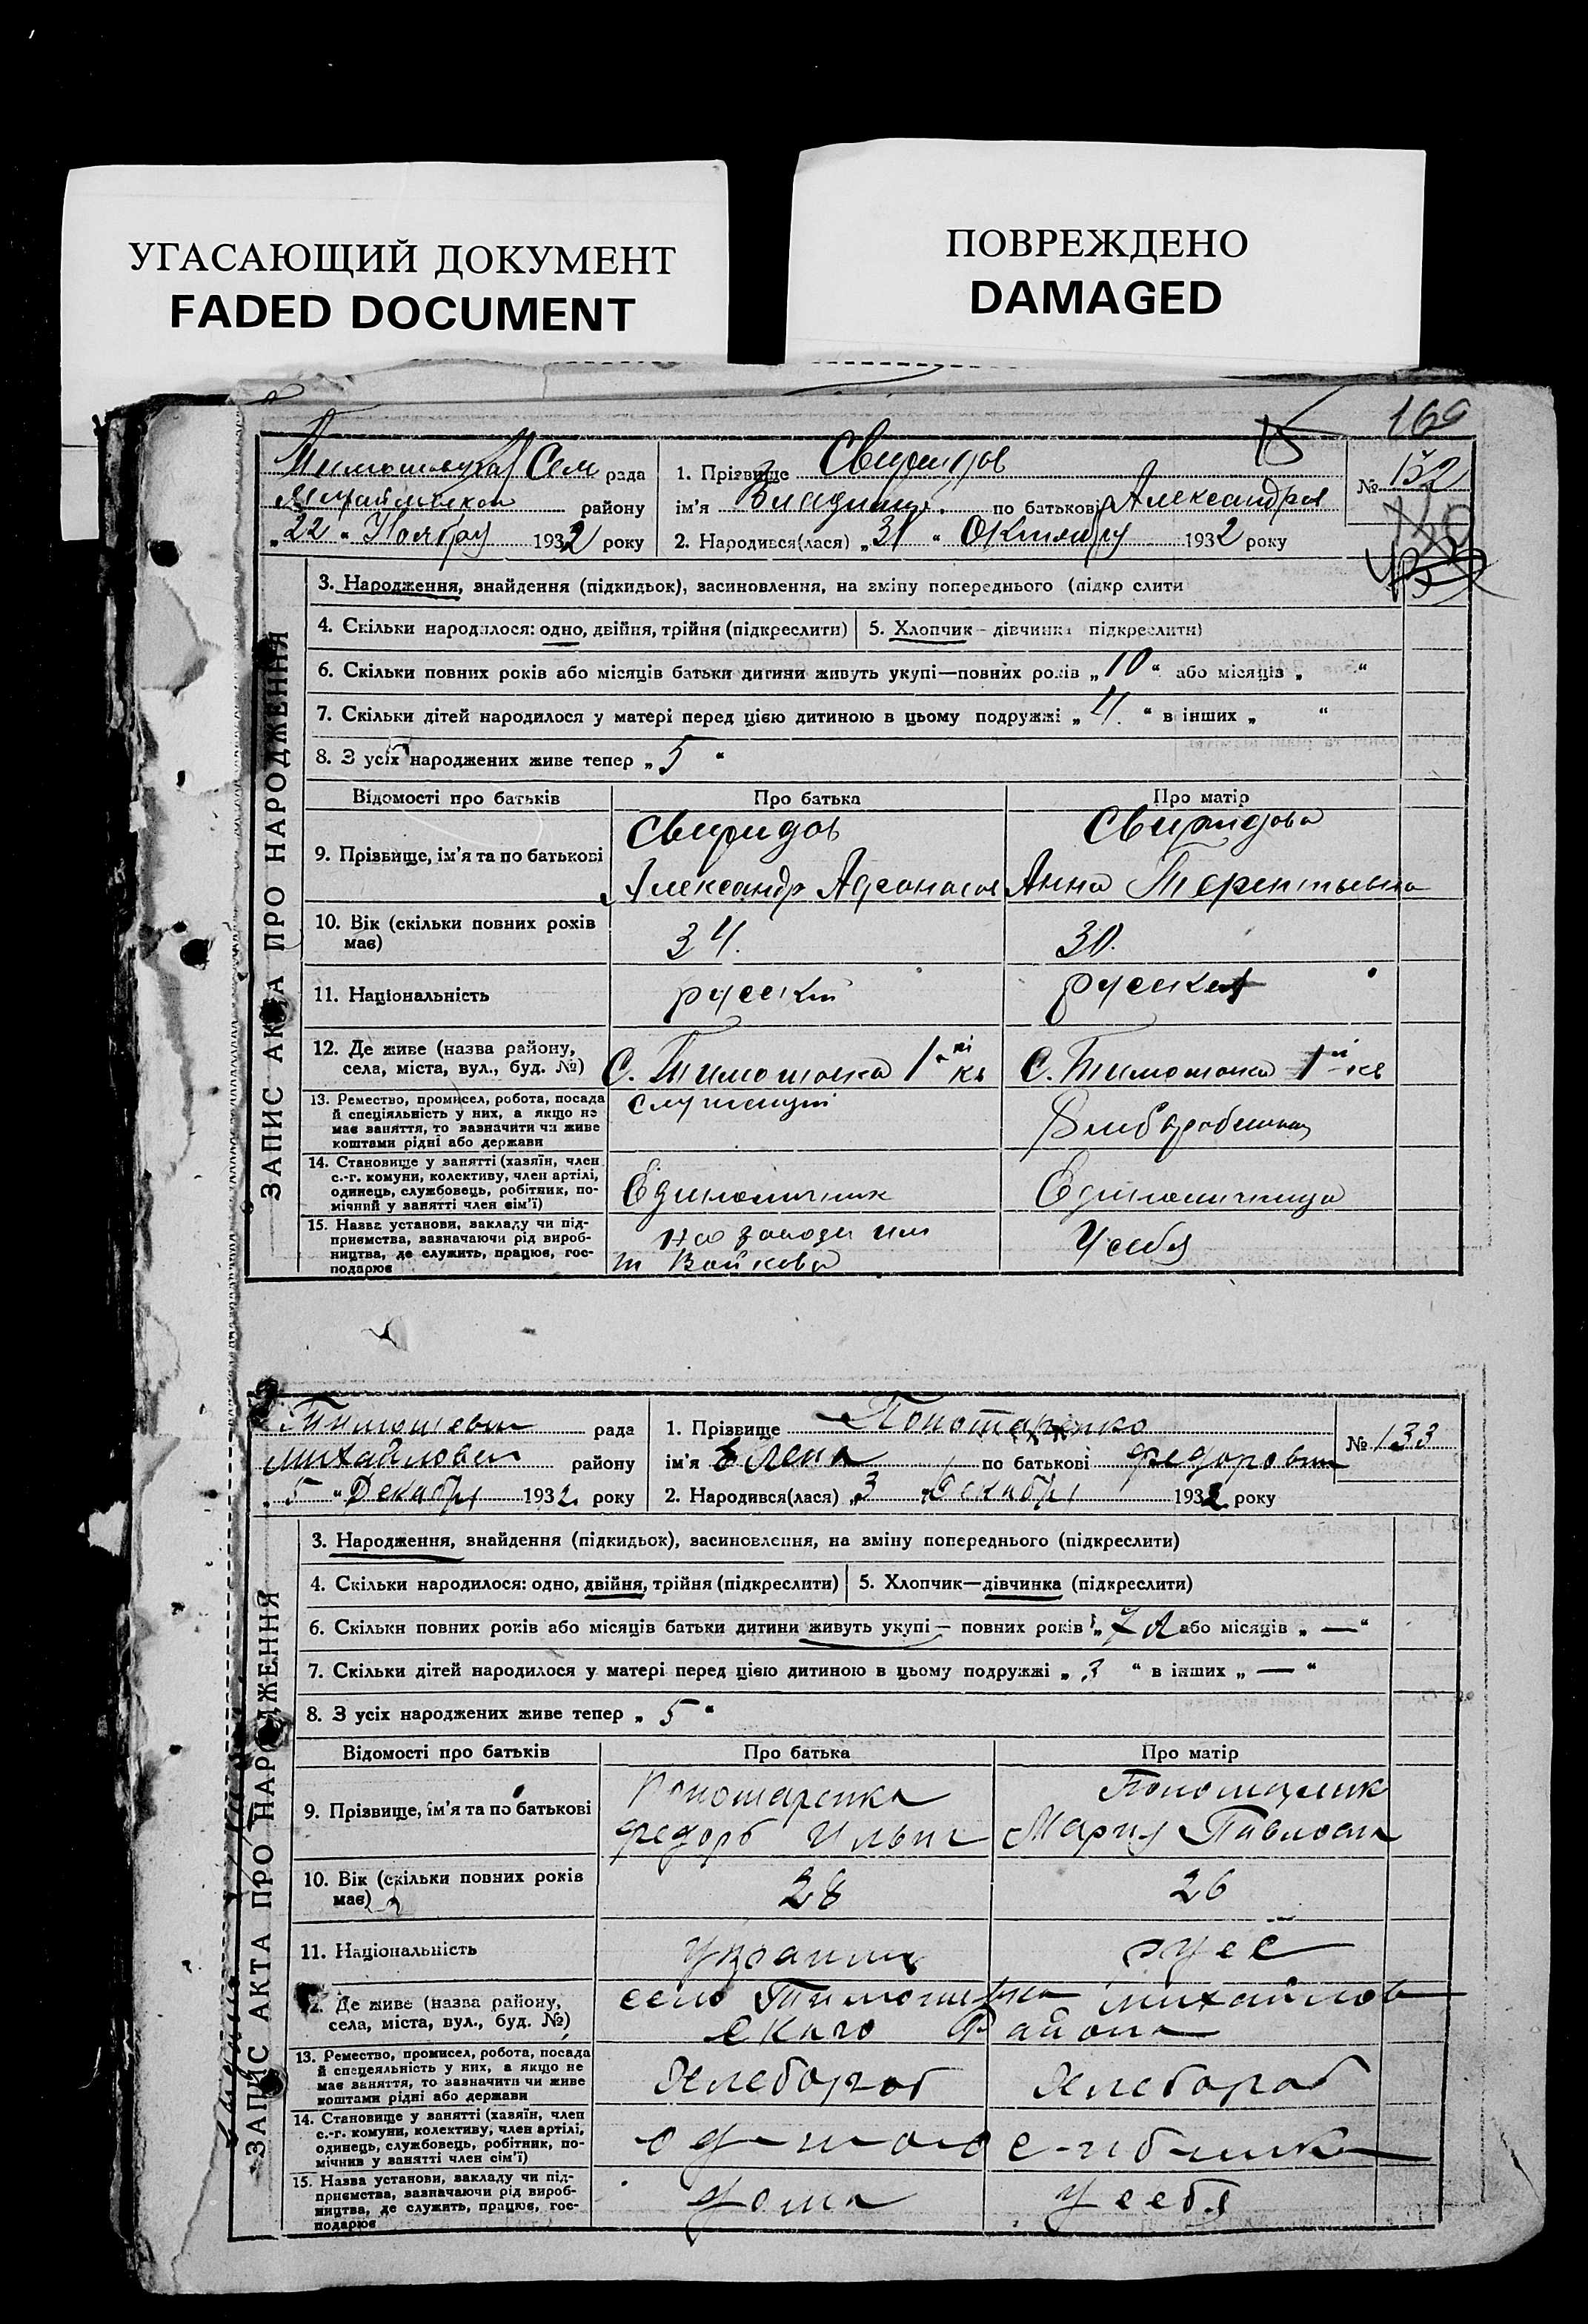 УГАСАЮЩИЙ ДОКУМЕНТ
FADED DOCUMENT
ПОВРЕЖДЕНО
DAMAGED
ЗАПИС АКТА ПРО НАРОДЖЕННЯ
Сел рада
району
"22" Ноября 1932 року
1. Прізвище Свиридов
ім'я Владимир. по батькові Александров
2. Народився(лася) "31" Октября 1932 року
№ 132
3. Народження, знайдення (підкидьок), засиновлення, на зміну попереднього (підкр слити
4. Скільки народилося: одно, двійня, трійня (підкреслити)
5. Хлопчик – дівчинка підкреслити)
6. Скільки повних років або місяців батьки дитини живуть укупі—повних років „10“ або місяців „ “
7. Скільки дітей народилося у матері перед цією дитиною в цьому подружжі „4.“ в інших „ “
8. З усіх народжених живе тепер „5“
Відомості про батьків
Про батька
Про матір
9. Прізвище, ім'я та по батькові
Свиридов
Александр
Свиридова
Анна Терентьевна
10. Вік (скільки повних років
має)
34.
30.
11. Національність
русский
русская
12. Де живе (назва району,
села, міста, вул., буд. №)
С. Тимошовка 1
С. Тимошовка 1
13. Ремество, промисел, робота, посада
й спеціяльність у них, а якщо не
має заняття, то зазначити чи живе
коштами рідні або держави
служащий
14. Становище у занятті (хазяїн, член
с.-г. комуни, колективу, член артілі,
одинець, службовець, робітник, по-
мічний у занятті член сім'ї)
Единоличник
Единоличница
15. Назва установи, закладу чи під-
приємства, зазначаючи рід вироб-
ництва, де служить, працює, гос-
подарює
на заводи им
т Войкова
У себя
ЗАПИС АКТА ПРО НАРОДЖЕННЯ
рада
району
"5" Декабря 1932 року
1. Прізвище
ім'я Елена по батькові
2. Народився(лася) „3 Декабря 1932 року
№ 133
3. Народження, знайдення (підкидьок), засиновлення, на зміну попереднього (підкреслити)
4. Скільки народилося: одно, двійня, трійня (підкреслити)
5. Хлопчик—дівчинка (підкреслити)
6. Скільки повних років або місяців батьки дитини живуть укупі — повних років „7 або місяців „ — “
7. Скільки дітей народилося у матері перед цією дитиною в цьому подружжі „3“ в інших „ — “
8. З усіх народжених живе тепер „5“
Відомості про батьків
Про батька
Про матір
9. Прізвище, ім'я та по батькові
Мария
10. Вік (скільки повних років
має)
28
26
11. Національність
12. Де живе (назва району,
села, міста, вул., буд. №)
село Тимошевка михайлов
скаго района
13. Ремество, промисел, робота, посада
й спецеяльність у них, а якщо не
має заняття, то зазначити чи живе
коштами рідні або держави
14. Становище у занятті (хазяїн, член
с.-г. комуни, колективу, член артілі,
одинець, службовець, робітник, по-
мічнив у занятті член сім'ї)
15. Назва установи, закладу чи під-
приємства, зазначаючи рід вироб-
ництва, де служить, працює, гос-
подарює
дома
у себя